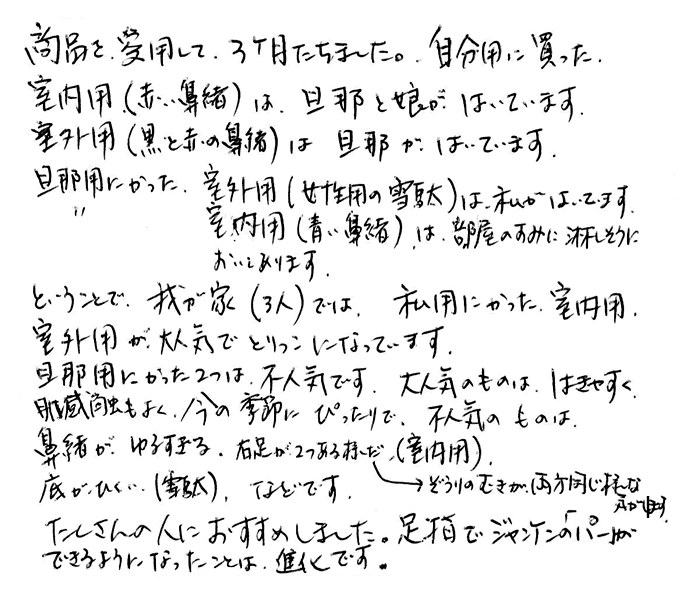 商品を、愛用して、3ケ月たちました。自分用に買った、
室内用(赤い鼻緒)は、旦那と娘が、はいています。
室外用(黒と赤の鼻緒)は 旦那が はいています。
旦那用にかった、室外用(女性用の雪駄)は、私がはいてます。
〃 室内用(青い鼻緒)は、部屋のすみに淋しそうに
おいてあります。
ということで、我が家(3人)では、私用にかった、室内用、
室外用が、大人気で とりっこになっています。
旦那用にかった2つは、不人気です。大人気のものは、はきやすく、
肌感触もよく、今の季節に ぴったりで、不人気の ものは、
鼻緒が、ゆるすぎる、右足が2つある様だ、(室内用)、
底がひくい…(雪駄)、などです。 →ぞうりのむきが、両方同じ様な
気がします。
たくさんの人におすすめしました。足指でジャンケンの「パー」が
できるようになったことは、進化です。